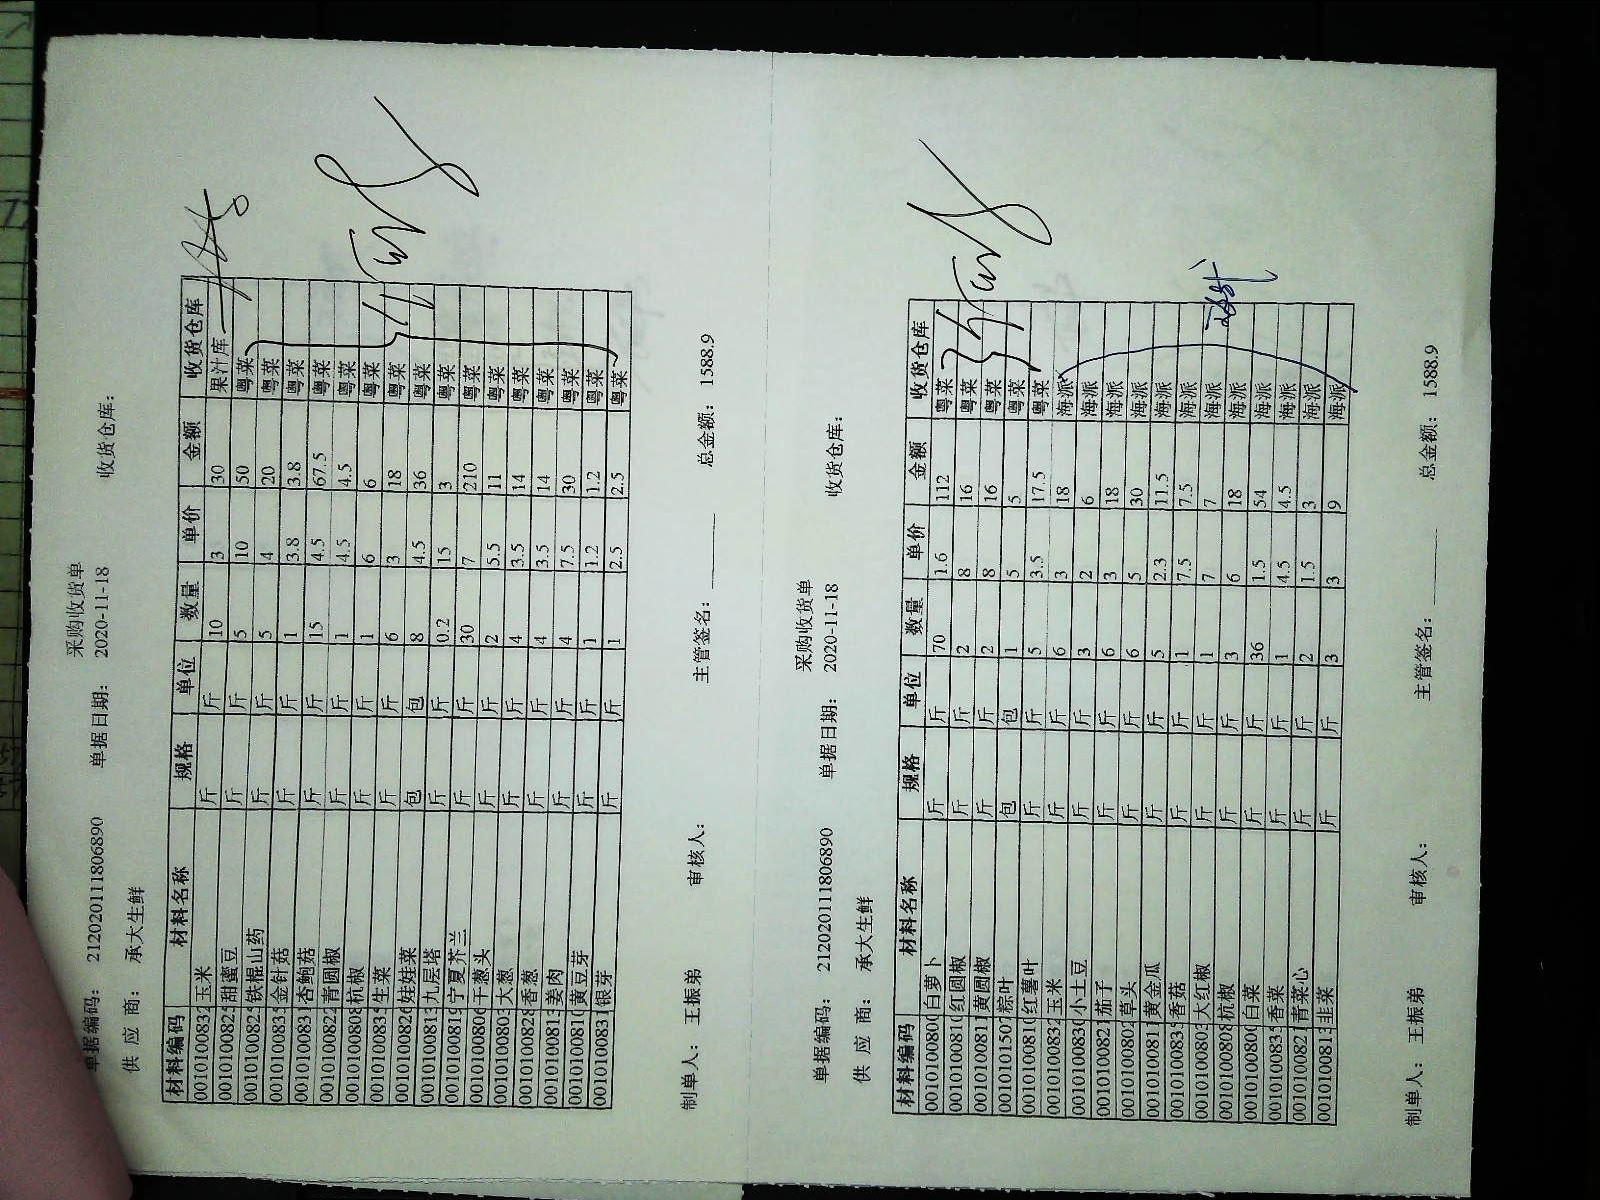 采购收货单
单据编码: 212020111806890 单据日期: 2020-11-18 收货仓库:
供 应 商: 承大生鲜
材料编码 材料名称 规格 单位 数量 单价 金额 收货仓库
0010100832 玉米 斤 斤 10 3 30 果汁库
0010100825 甜蜜豆 斤 斤 5 10 50 粤菜
0010100825 铁棍山药 斤 斤 5 4 20 粤菜
0010100835 金针菇 斤 斤 1 3.8 3.8 粤菜
0010100831 杏鲍菇 斤 斤 15 4.5 67.5 粤菜
0010100822 青圆椒 斤 斤 1 4.5 4.5 粤菜
0010100808 杭椒 斤 斤 1 6 6 粤菜
0010100835 生菜 斤 斤 6 3 18 粤菜
0010100826 娃娃菜 包 包 8 4.5 36 粤菜
0010100813 九层塔 斤 斤 0.2 15 3 粤菜
0010100819 宁夏芥兰 斤 斤 30 7 210 粤菜
0010100806 干葱头 斤 斤 2 5.5 11 粤菜
0010100803 大葱 斤 斤 4 3.5 14 粤菜
0010100828 香葱 斤 斤 4 3.5 14 粤菜
0010100813 姜肉 斤 斤 4 7.5 30 粤菜
0010100810 黄豆芽 斤 斤 1 1.2 1.2 粤菜
0010100831 银芽 斤 斤 1 2.5 2.5 粤菜
制单人: 王振弟 审核人: 主管签名: 总金额: 1588.9
采购收货单
单据编码: 212020111806890 单据日期: 2020-11-18 收货仓库:
供 应 商: 承大生鲜
材料编码 材料名称 规格 单位 数量 单价 金额 收货仓库
0010100800 白萝卜 斤 斤 70 1.6 112 粤菜
0010100810 红圆椒 斤 斤 2 8 16 粤菜
0010100811 黄圆椒 斤 斤 2 8 16 粤菜
0010101507 粽叶 包 包 1 5 5 粤菜
0010100810 红薯叶 斤 斤 5 3.5 17.5 粤菜
0010100832 玉米 斤 斤 6 3 18 海派
0010100830 小土豆 斤 斤 3 2 6 海派
0010100821 茄子 斤 斤 6 3 18 海派
0010100802 草头 斤 斤 6 5 30 海派
0010100811 黄金瓜 斤 斤 5 2.3 11.5 海派
0010100835 香菇 斤 斤 1 7.5 7.5 海派
0010100803 大红椒 斤 斤 1 7 7 海派
0010100808 杭椒 斤 斤 3 6 18 海派
0010100800 白菜 斤 斤 36 1.5 54 海派
0010100835 香菜 斤 斤 1 4.5 4.5 海派
0010100821 青菜心 斤 斤 2 1.5 3 海派
0010100813 韭菜 斤 斤 3 3 9 海派
制单人: 王振弟 审核人: 主管签名: 总金额: 1588.9